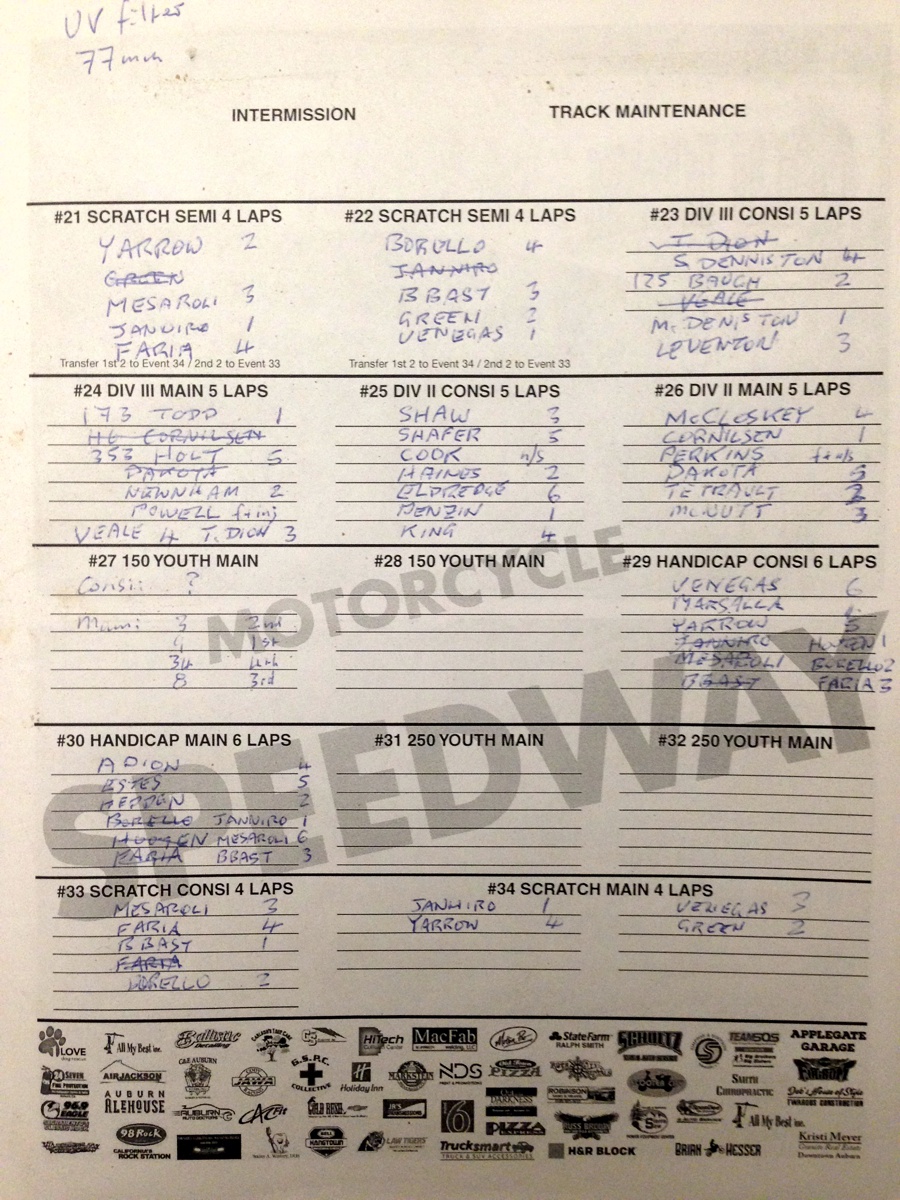 UV filter
77mm
INTERMISSION
TRACK MAINTENANCE
#21 SCRATCH SEMI 4 LAPS
YARROW 2
GREEN
MESAROLI 3
JANNIRO 1
FARIA 4
Transfer 1st 2 to Event 34 / 2nd 2 to Event 33
#22 SCRATCH SEMI 4 LAPS
BORELLO 4
JANNIRO
B BAST 3
GREEN 2
VENEGAS 1
Transfer 1st 2 to Event 34 / 2nd 2 to Event 33
#23 DIV III CONSI 5 LAPS
T DION
S DENNISTON 4
125 BAUGH 2
VEALE
M. DENISTON 1
LEVENTON 3
#24 DIV III MAIN 5 LAPS
173 TODD 1
CORNILSEN
353 HOLT 5
DAKOTA
NEWNHAM 2
POWELL
VEALE 4 T. DION 3
#25 DIV II CONSI 5 LAPS
SHAW 3
SHAFER 5
COOK n/s
HAINES 2
ELDREDGE 6
BENZIN 1
KING 4
#26 DIV II MAIN 5 LAPS
McCLOSKEY 4
CORNILSEN 1
PERKINS
DAKOTA 5
TETRAULT 2
McNUTT 3
#27 150 YOUTH MAIN
Consi: ?
Main: 3 2nd
9 1st
34 4th
8 3rd
#28 150 YOUTH MAIN
#29 HANDICAP CONSI 6 LAPS
VENEGAS 6
MARSALLA
YARROW 5
JANNIRO HUGGEN 1
MESAROLI BORELLO 2
BBAST FARIA 3
MOTORCYCLE
SPEEDWAY
#30 HANDICAP MAIN 6 LAPS
A DION 4
ESTES 5
HEDDEN 2
BORELLO JANNIRO 1
HUGGEN MESAROLI 6
FARIA BBAST 3
#31 250 YOUTH MAIN
#32 250 YOUTH MAIN
#33 SCRATCH CONSI 4 LAPS
MESAROLI 3
FARIA 4
B BAST 1
FARIA
BORELLO 2
#34 SCRATCH MAIN 4 LAPS
JANNIRO 1
YARROW 4
VENEGAS 3
GREEN 2
iLOVE
All My Best inc.
Ballistic
HiTech
MacFab
StateFarm
RALPH SMITH
SCHULTZ
TEAMSOS
APPLEGATE
GARAGE
SEVEN
AIRJACKSON
C&E AUBURN
JAWA
G.S.P.C.
COLLECTIVE
Holiday Inn
NDS
SMITH
CHIROPRACTIC
96.9
EAGLE
AUBURN
ALEHOUSE
AUBURN
GOLD RUSH
16
DARKNESS
ROBINSON
98 Rock
CALIFORNIA'S
ROCK STATION
BELL
HANGTOWN
LAW TIGERS
PIZZA
RUSS BROWN
All My Best inc.
Trucksmart
TRUCK & SUV ACCESSORIES
H&R BLOCK
BRIAN HESSER
Kristi Meyer
Downtown Auburn